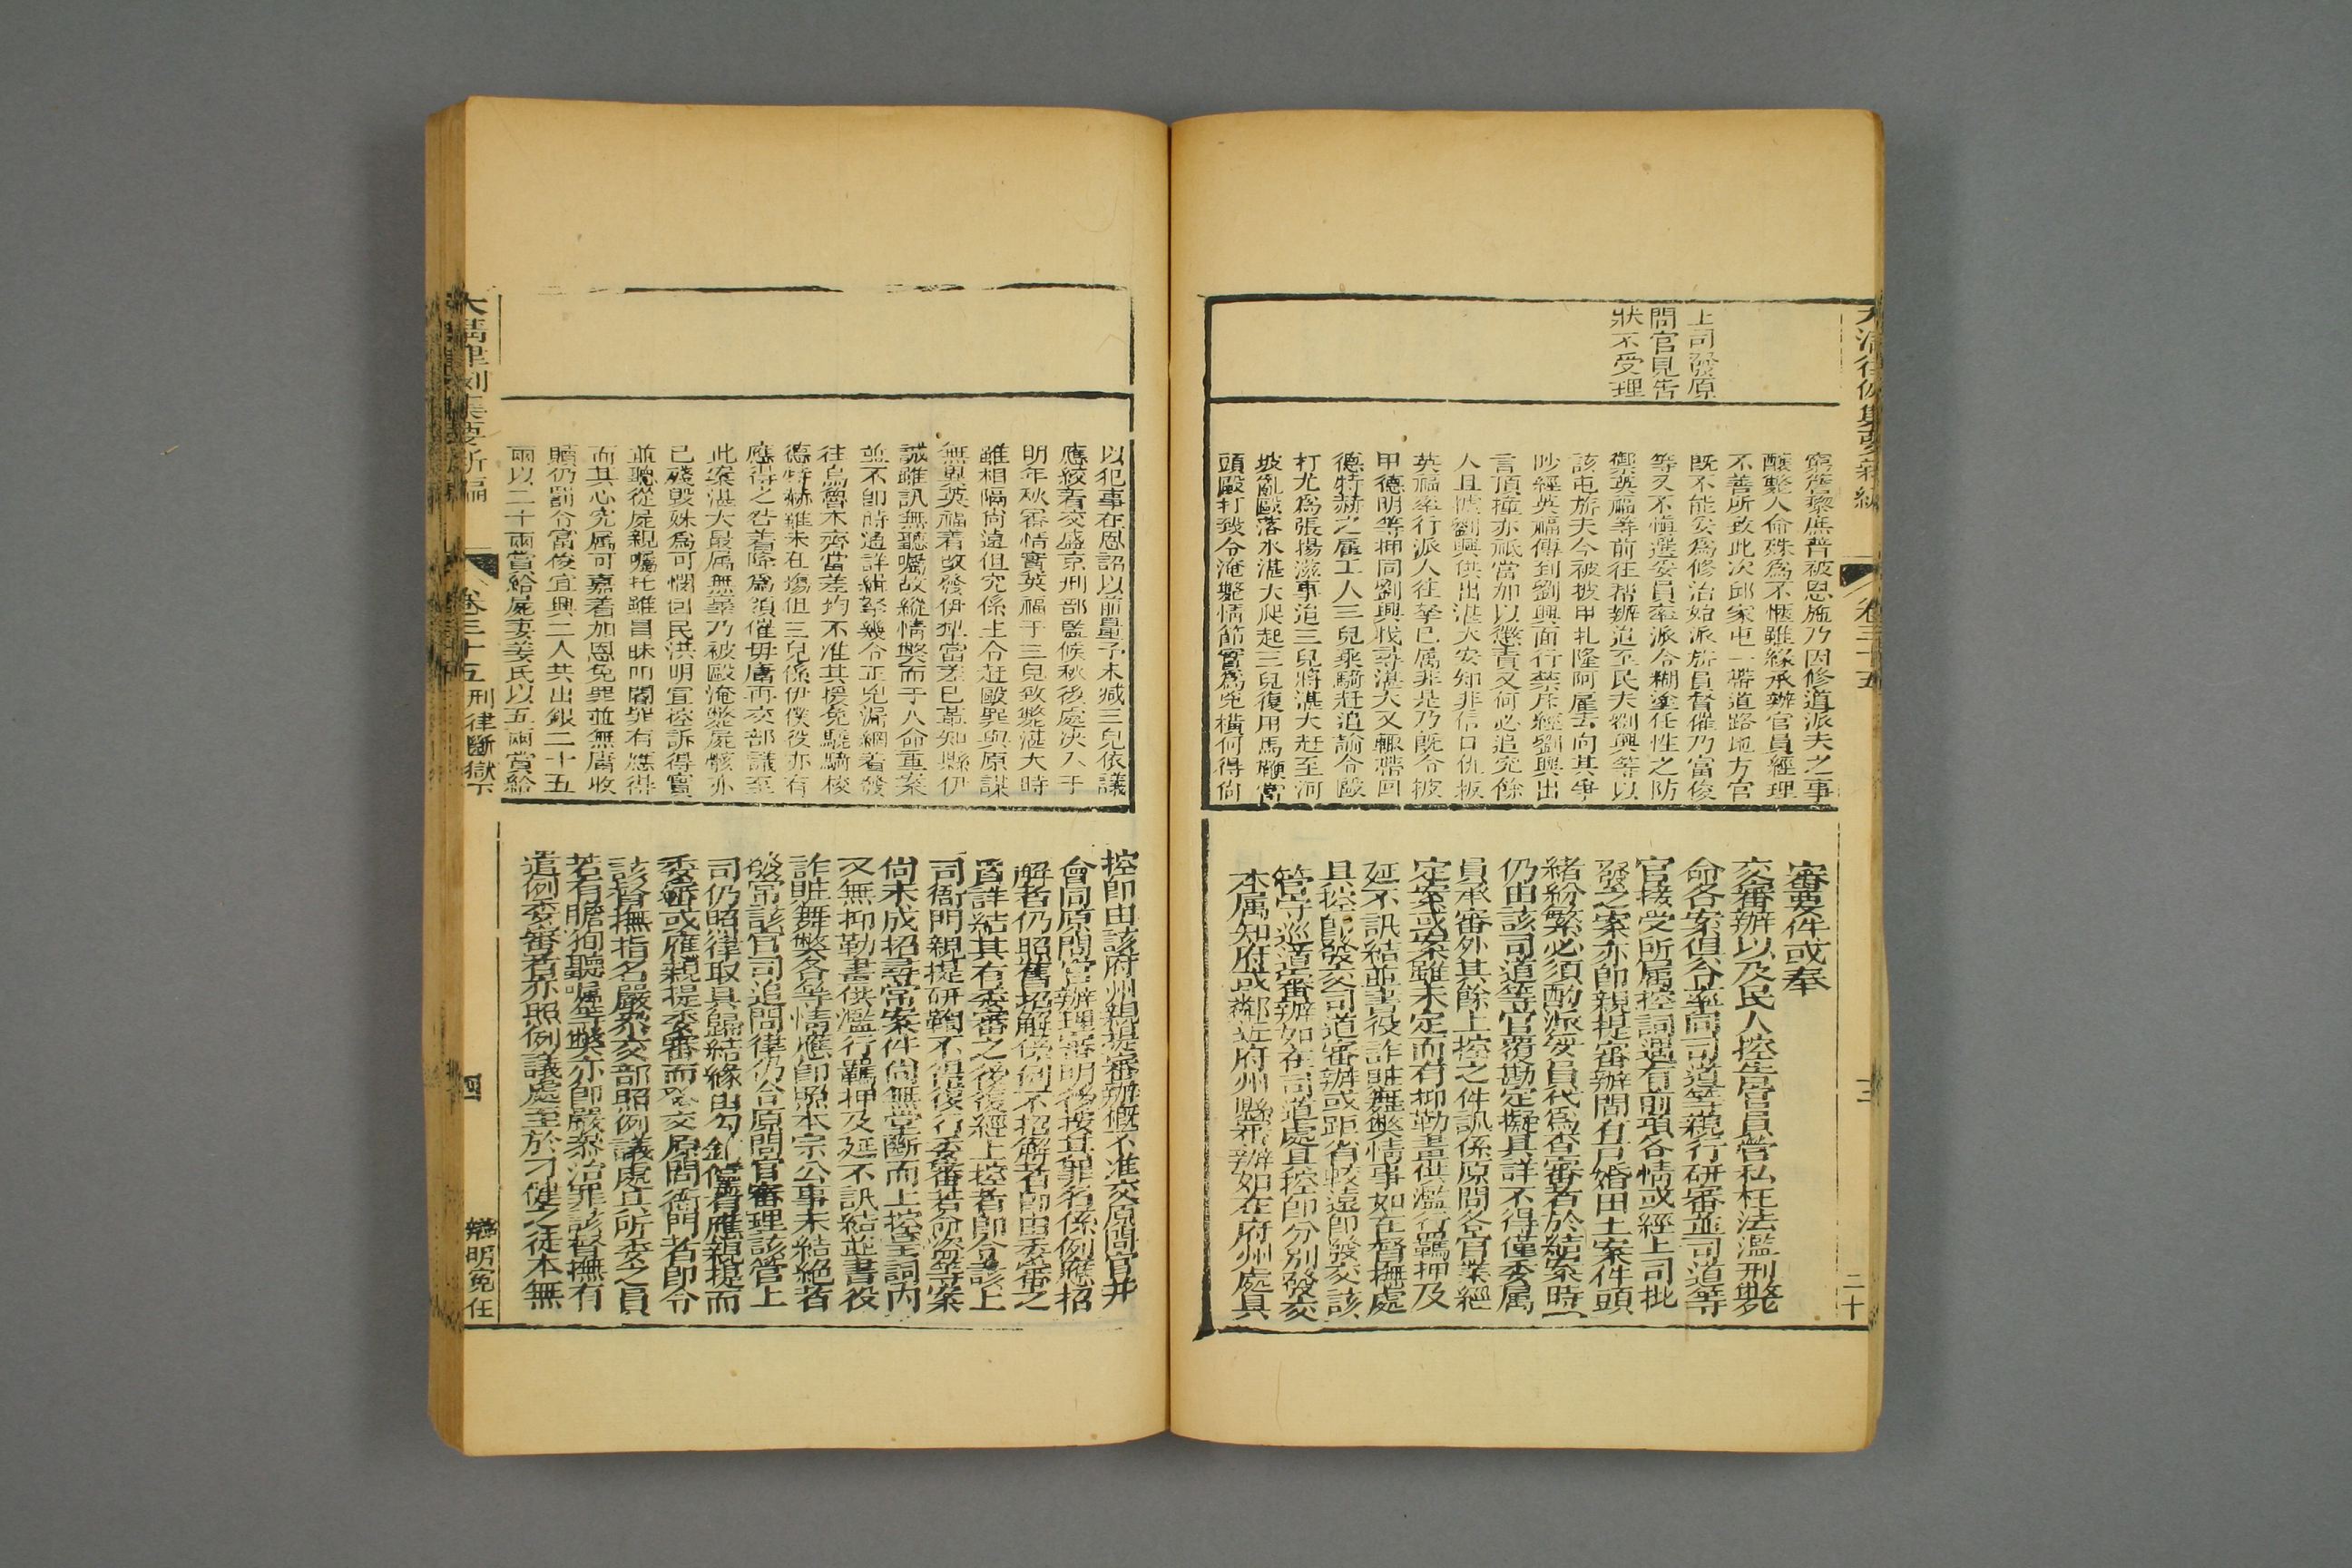 大清律例集要新編
卷三十五
二十
上司發原
問官見告
狀不受理
窮簷蔀屋普被恩施乃因修道派夫之事
釀斃人命殊為不愜雖緣承辦官員經理
不善所致此次邱家屯一帶道路地方官
既不能妥為修治始派旂員督催乃富俊
等又不慎選妥員率派令糊塗任性之防
禦英福等前往幫辦迨至民夫劉興等以
該屯旂夫今被披甲扎隆阿雇去向其爭
吵經英福傳到劉興面行禁斥經劉興出
言頂撞亦祇當加以懲責又何必追究餘
人且彼劉興供出湛大安知非信口仇扳
英福率行派人往拏已屬非是乃既令披
甲德明等押同劉興找尋湛大又輙帶回
德特赫之雇工人三兒乘騎赶追諭令毆
打尤為張揚滋事迨三兒將湛大赶至河
坡亂毆落水湛大爬起三兒復用馬鞭當
頭毆打致令淹斃情節實為兇橫何得尚
審要件或奉
交審辦以及民人控告官員營私枉法濫刑斃
命各案俱令率同司道等親行研審並司道等
官接受所屬控詞遇有前項各情或經上司批
發之案亦即親提審辦間有戶婚田土案件頭
緒紛繁必須酌派妥員代為查審者於結案時
仍由該司道等官覆勘定擬具詳不得僅委屬
員承審外其餘上控之件訊係原問各官業經
定案或案雖未定而有抑勒畫供濫行羈押及
延不訊結並書役詐贓舞弊情事如在督撫處
具控即發交司道審辦或距省較遠即發交該
管守巡道審辦如在司道處具控即分別發交
本屬知府或鄰近府州縣審辦如在府州處具
以犯事在恩詔以前量予末減三兒依議
應絞着交盛京刑部監候秋後處決入于
明年秋審情實英福于三兒致斃湛大時
雖相隔尚遠但究係主令赶毆罪與原謀
無異英福着改發伊犁當差已革知縣伊
誠雖訊無聽囑故縱情獘而于人命重案
並不即時通詳緝拏幾令正兇漏網着發
往烏魯木齊當差均不准其援免驍騎校
德特赫雖未在塲但三兒係伊僕役亦有
應得之咎着降為領催毋庸再交部議至
此案湛大最属無辜乃被毆淹斃屍骸亦
已殘毀殊為可憫回民洪明宣控訴得實
並聽從屍親囑托雖冒昧叩閽罪有應得
而其心究属可嘉着加恩免罪並無庸收
贖仍罰令富俊宜興二人共出銀二十五
兩以二十兩賞給屍妻姜氏以五兩賞給
控即由該府州親提審辦槪不准交原問官并
會同原問官辦理審明後按其罪名係例應招
解者仍照舊招解係例不招解者即由委審之
官詳結其有委審之後復經上控者即令該上
司衙門親提研鞫不得復行委審若命盜等案
尙未成招尋常案件尙無堂斷而上控呈詞內
又無抑勒畫供濫行羈押及延不訊結並書役
詐贓舞弊各等情應即照本宗公事未結絕者
發當該官司追問律仍令原問官審理該管上
司仍照律取具歸結緣由勾銷儻有應親提而
委審或應親提委審而又令交原問衙門者即令
該督撫指名嚴叅交部照例議處其所委之員
若有瞻狥聽囑等弊亦即嚴叅治罪該督撫有
違例委審者亦照例議處至於刁健之徒本無
大清律例集要新編
卷三十五
刑律斷獄下
四
辯明冤任